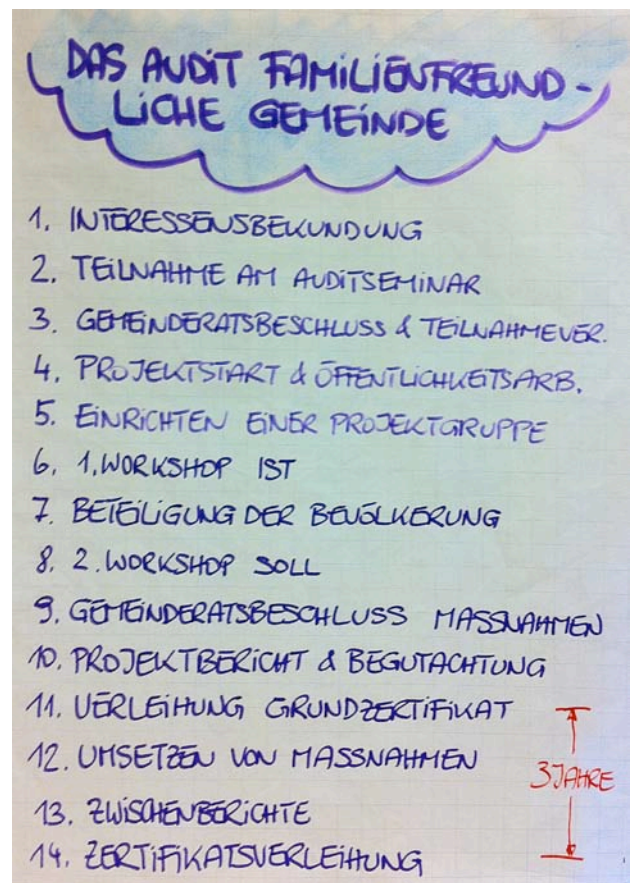 DAS AUDIT FAMILIENFREUND-
LICHE GEMEINDE
1. INTERESSENSBEKUNDUNG
2. TEILNAHME AM AUDITSEMINAR
3. GEMEINDERATSBESCHLUSS & TEILNAHMEVER.
4. PROJEKTSTART & ÖFFENTLICHKEITSARB.
5. EINRICHTEN EINER PROJEKTGRUPPE
6. 1. WORKSHOP IST
7. BETEILIGUNG DER BEVÖLKERUNG
8. 2. WORKSHOP SOLL
9. GEMEINDERATSBESCHLUSS MASSNAHMEN
10. PROJEKTBERICHT & BEGUTACHTUNG
11. VERLEIHUNG GRUNDZERTIFIKAT
12. UMSETZEN VON MASSNAHMEN
3 JAHRE
13. ZWISCHENBERICHTE
14. ZERTIFIKATSVERLEIHUNG